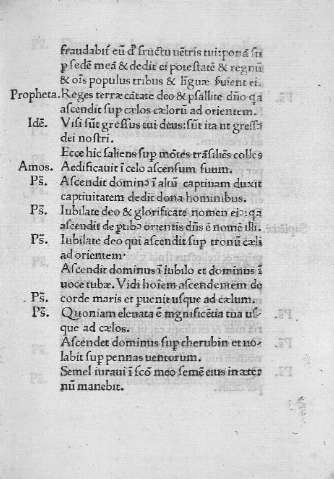 fraudabis eū d' fructu uētris tui: ponā sū
p sedē meā & dedit ei potestatē & regnū
& oīs populus tribus & liguæ seruient ei.
Propheta. Reges terræ cātate deo & psallite dño qa
ascendit sup cælos cælorū ad orientem.
Idē. Visi sūt gressus tui deus: sūt ita ut gressꝰ
dei nostri.
Ecce hic saliens sup mōtes trāsiliēs colles
Amos. Aedificauit ī celo ascensum suum.
Ps̄. Ascendit dominꝰ ī altū captiuam duxit
captiuitatem dedit dona hominibus.
Ps̄. Iubilate deo & glorificate nomen eiꝰ: qa
ascendit de
orientis dūs ē nomē illi.
Ps̄. Iubilate deo qui ascendit sup tronū cæli
ad orientem·
Ascendit dominus ī iubilo et dominus ī
uoce tubæ. Vidi hoīem ascendentem de
Ps̄. corde maris et puenit usque ad cælum.
Ps̄. Quoniam eleuata ē mgnificētia tua us-
que ad cælos.
Ascendet dominus sup cherubin et uo-
labit sup pennas uentorum.
Semel iuraui ī scō meo semē eius in æter
nū manebit.